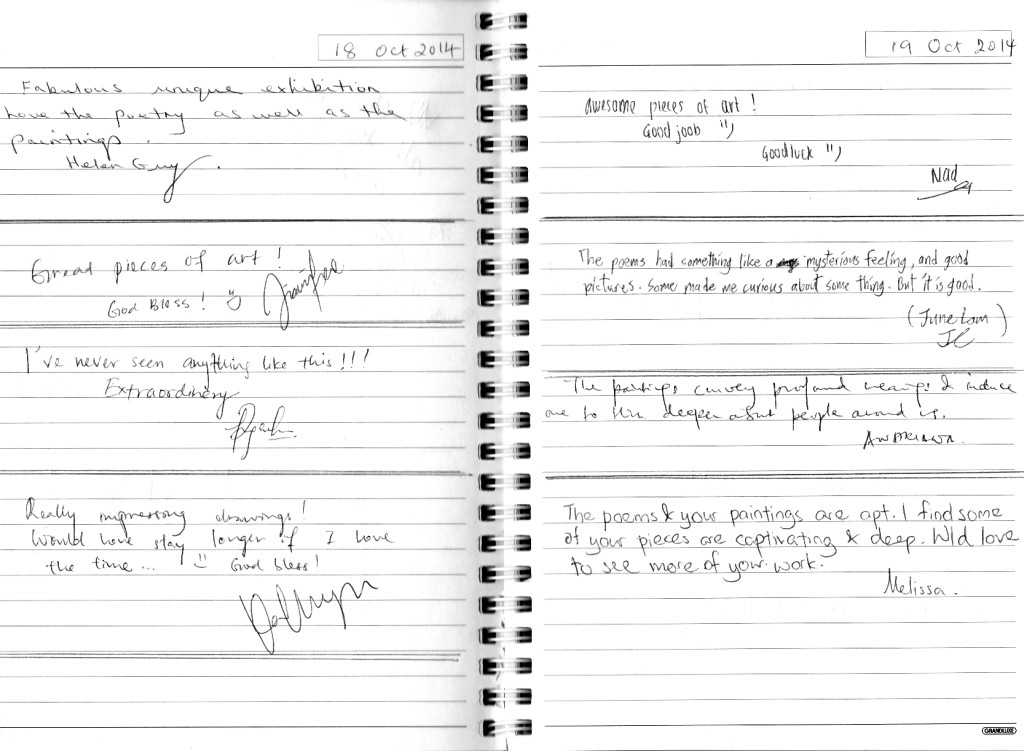 18 Oct 2014
Fabulous unique exhibition
love the poetry as well as the
paintings.
Helen Guy.
Great pieces of art!
God Bless!
I've never seen anything like this!!!
Extraordinary
Really impressing drawings!
Would love stay longer if I have
the time... God bless!
19 Oct 2014
awesome pieces of art!
Good joob ")
Goodluck ")
Nad
The poems had something like a mysterious feeling, and good
pictures. Some made me curious about some thing. But it is good.
(June Lom)
JL
The paintings convey profound meanings & induce
one to think deeper about people around us.
The poems & your paintings are apt. I find some
of your pieces are captivating & deep. Wld love
to see more of your work.
Melissa.
GRANDLUXE